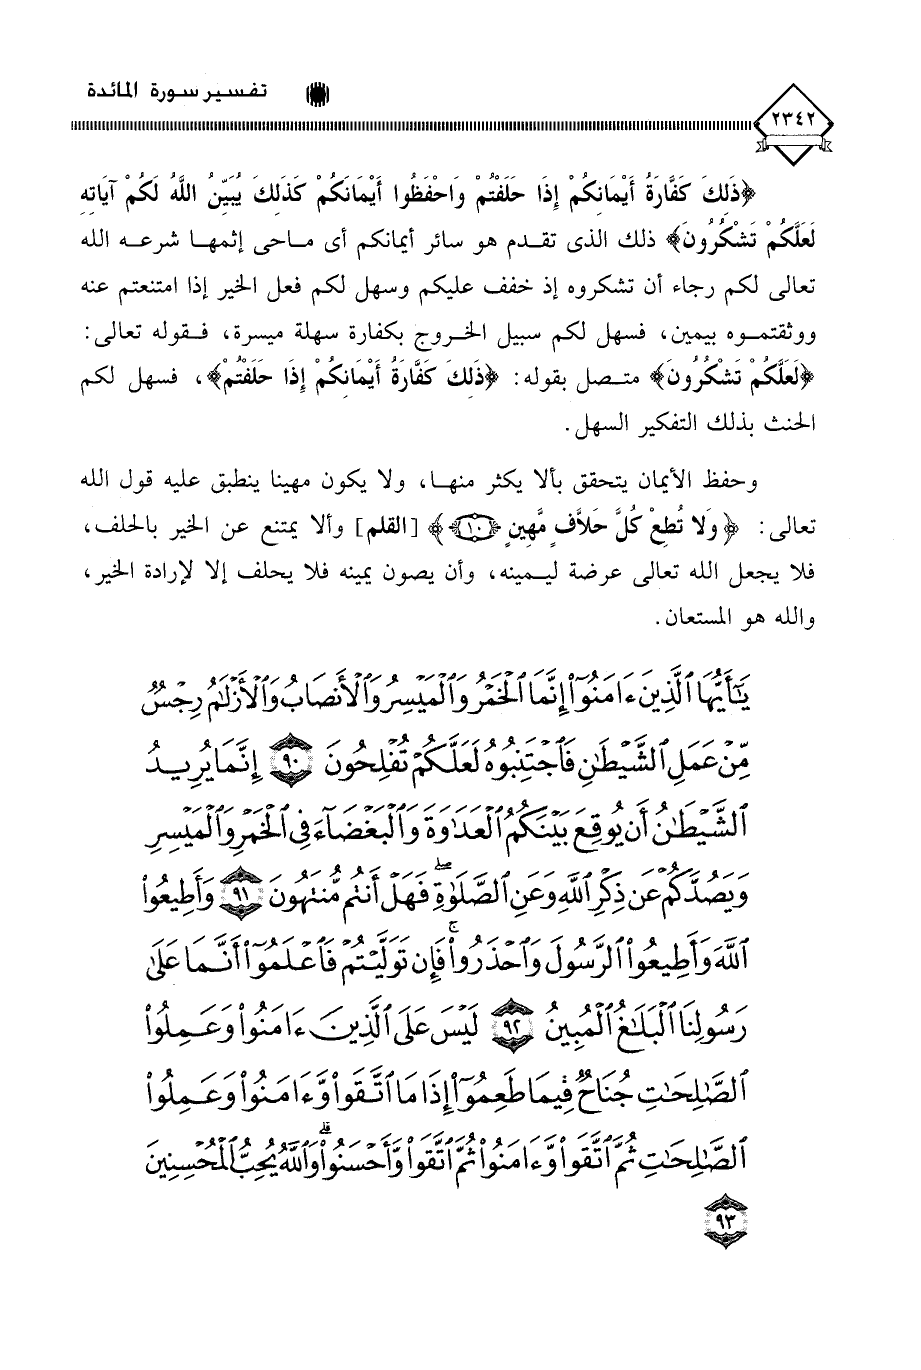 تفسير سورة المائدة
٢٣٤٢
﴿ذَلِكَ كَفَّارَةُ أَيْمَانِكُمْ إِذَا حَلَفْتُمْ وَاحْفَظُوا أَيْمَانَكُمْ كَذَلِكَ يُبَيِّنُ اللَّهُ لَكُمْ آيَاتِهِ
لَعَلَّكُمْ تَشْكُرُونَ﴾ ذلك الذى تقدم هو سائر أيمانكم أى ماحى إثمها شرعه الله
تعالى لكم رجاء أن تشكروه إذ خفف عليكم وسهل لكم فعل الخير إذا امتنعتم عنه
ووثقتموه بيمين، فسهل لكم سبيل الخروج بكفارة سهلة ميسرة، فقوله تعالى:
﴿لَعَلَّكُمْ تَشْكُرُونَ﴾ متصل بقوله: ﴿ذَلِكَ كَفَّارَةُ أَيْمَانِكُمْ إِذَا حَلَفْتُمْ﴾، فسهل لكم
الحنث بذلك التفكير السهل.
وحفظ الأيمان يتحقق بألا يكثر منها، ولا يكون مهينا ينطبق عليه قول الله
تعالى: ﴿وَلا تُطِعْ كُلَّ حَلاَّفٍ مَّهِينٍ ﴿١٠﴾﴾ [القلم] وألا يمتنع عن الخير بالحلف،
فلا يجعل الله تعالى عرضة ليمينه، وأن يصون يمينه فلا يحلف إلا لإرادة الخير،
والله هو المستعان.
يَٰٓأَيُّهَا ٱلَّذِينَ ءَامَنُوٓا۟ إِنَّمَا ٱلْخَمْرُ وَٱلْمَيْسِرُ وَٱلْأَنصَابُ وَٱلْأَزْلَٰمُ رِجْسٌ
مِّنْ عَمَلِ ٱلشَّيْطَٰنِ فَٱجْتَنِبُوهُ لَعَلَّكُمْ تُفْلِحُونَ ٩٠ إِنَّمَا يُرِيدُ
ٱلشَّيْطَٰنُ أَن يُوقِعَ بَيْنَكُمُ ٱلْعَدَٰوَةَ وَٱلْبَغْضَآءَ فِى ٱلْخَمْرِ وَٱلْمَيْسِرِ
وَيَصُدَّكُمْ عَن ذِكْرِ ٱللَّهِ وَعَنِ ٱلصَّلَوٰةِ ۖ فَهَلْ أَنتُم مُّنتَهُونَ ٩١ وَأَطِيعُوا۟
ٱللَّهَ وَأَطِيعُوا۟ ٱلرَّسُولَ وَٱحْذَرُوا۟ ۚ فَإِن تَوَلَّيْتُمْ فَٱعْلَمُوٓا۟ أَنَّمَا عَلَىٰ
رَسُولِنَا ٱلْبَلَٰغُ ٱلْمُبِينُ ٩٢ لَيْسَ عَلَى ٱلَّذِينَ ءَامَنُوا۟ وَعَمِلُوا۟
ٱلصَّٰلِحَٰتِ جُنَاحٌ فِيمَا طَعِمُوٓا۟ إِذَا مَا ٱتَّقَوا۟ وَّءَامَنُوا۟ وَعَمِلُوا۟
ٱلصَّٰلِحَٰتِ ثُمَّ ٱتَّقَوا۟ وَّءَامَنُوا۟ ثُمَّ ٱتَّقَوا۟ وَّأَحْسَنُوا۟ ۗ وَٱللَّهُ يُحِبُّ ٱلْمُحْسِنِينَ
٩٣